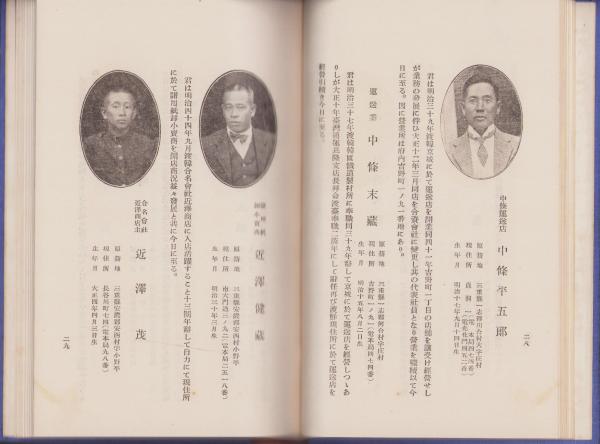 中條運送店
中條平五郎
原籍地 三重縣一志郡川合村大字庄村
現住所
生年月 明治十七年九月十四日生
君は明治三十九年渡韓京城に於て運送店を開業同四十一年吉野町一丁目の店舗を讓受け經營せし
が業務の發展に伴ひ大正十二年三月同店を合資會社に變更し其の代表社員となり營業を繼續以て今
日に至る。因に營業所は府內吉野町一ノ九一番地にあり。
運送業 中條末藏
原籍地 三重縣一志郡河合村字庄村
現住所 吉野町一ノ九一(電本局四七四番)
生年月 明治十五年八月二日生
君は明治三十七年渡韓韓國鐵道製材所に奉職同三十九年辭して京城に於て運送店を經營しつゝあ
りしが大正十年臺灣
經營引續き今日に至る。
二八
近澤健藏
原籍地 三重縣安濃郡安西村字小野平
現住所 南大門通三ノ九二(電本局二五一八番)
生年月 明治三十年三月
君は明治四十四年九月渡韓合名會社近澤商店に入店活躍すること十三ヶ年辭して自力にて現住所
に於て諸用紙卸小賣商を開店商況益々發展と共に今日に至る。
合名會社
近澤商店主
近澤茂
原籍地 三重縣安濃郡安西村字小野平
現住所 長谷川町七四(電本局九八番)
生年月 大正四年四月三日生
二九